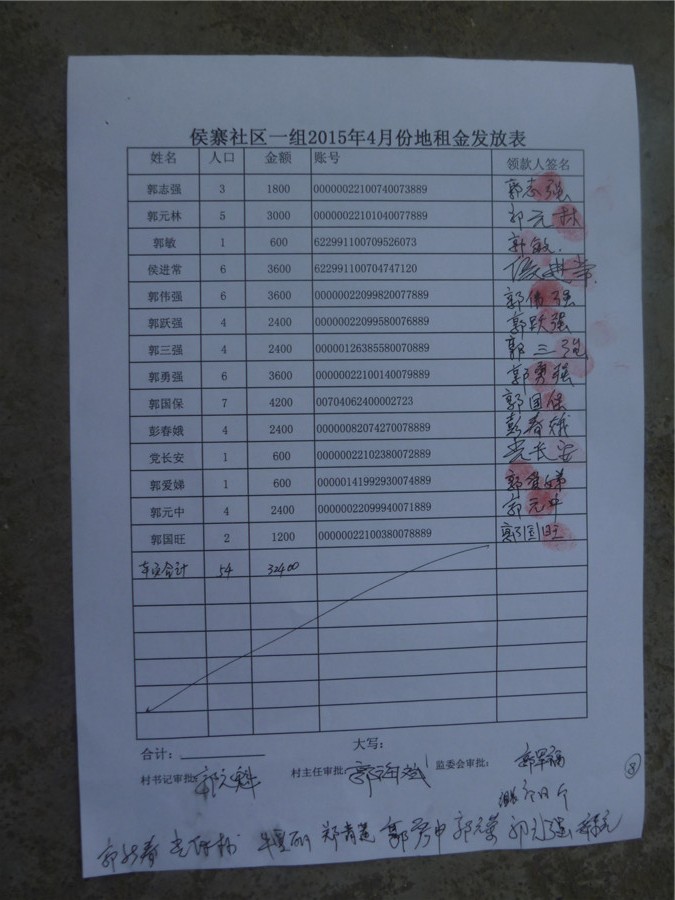 侯寨社区一组2015年4月份地租金发放表
姓名 人口 金额 账号 领款人签名
郭志强 3 1800 00000022100740073889 郭志强
郭元林 5 3000 00000022101040077889 郭元林
郭敏 1 600 622991100709526073 郭敏
侯进常 6 3600 622991100704747120 侯进常
郭伟强 6 3600 00000022099820077889 郭伟强
郭跃强 4 2400 00000022099580076889 郭跃强
郭三强 4 2400 00000126385580070889 郭三强
郭勇强 6 3600 00000022100140079889 郭勇强
郭国保 7 4200 00704062400002723 郭国保
彭春娥 4 2400 00000082074270078889 彭春娥
党长安 1 600 00000022102380072889 党长安
郭爱娣 1 600 00000141992930074889 郭爱娣
郭元中 4 2400 00000022099940071889 郭元中
郭国旺 2 1200 00000022100380078889 郭国旺
本页合计 54 32400
合计： 大写：
村书记审批： 村主任审批： 监委会审批：
8